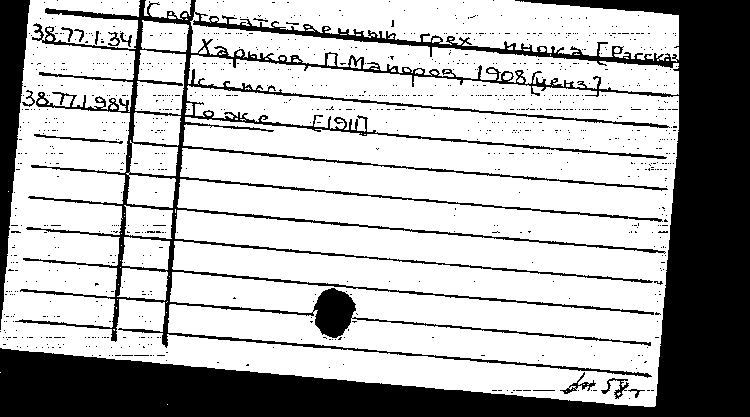 Святотатственный грех инока [Рассказ
38.77.1.34 Харьков, П.Майоров, 1908 [ценз].
1с. с илл.
38.77.1.984 То же. [1911].
58г